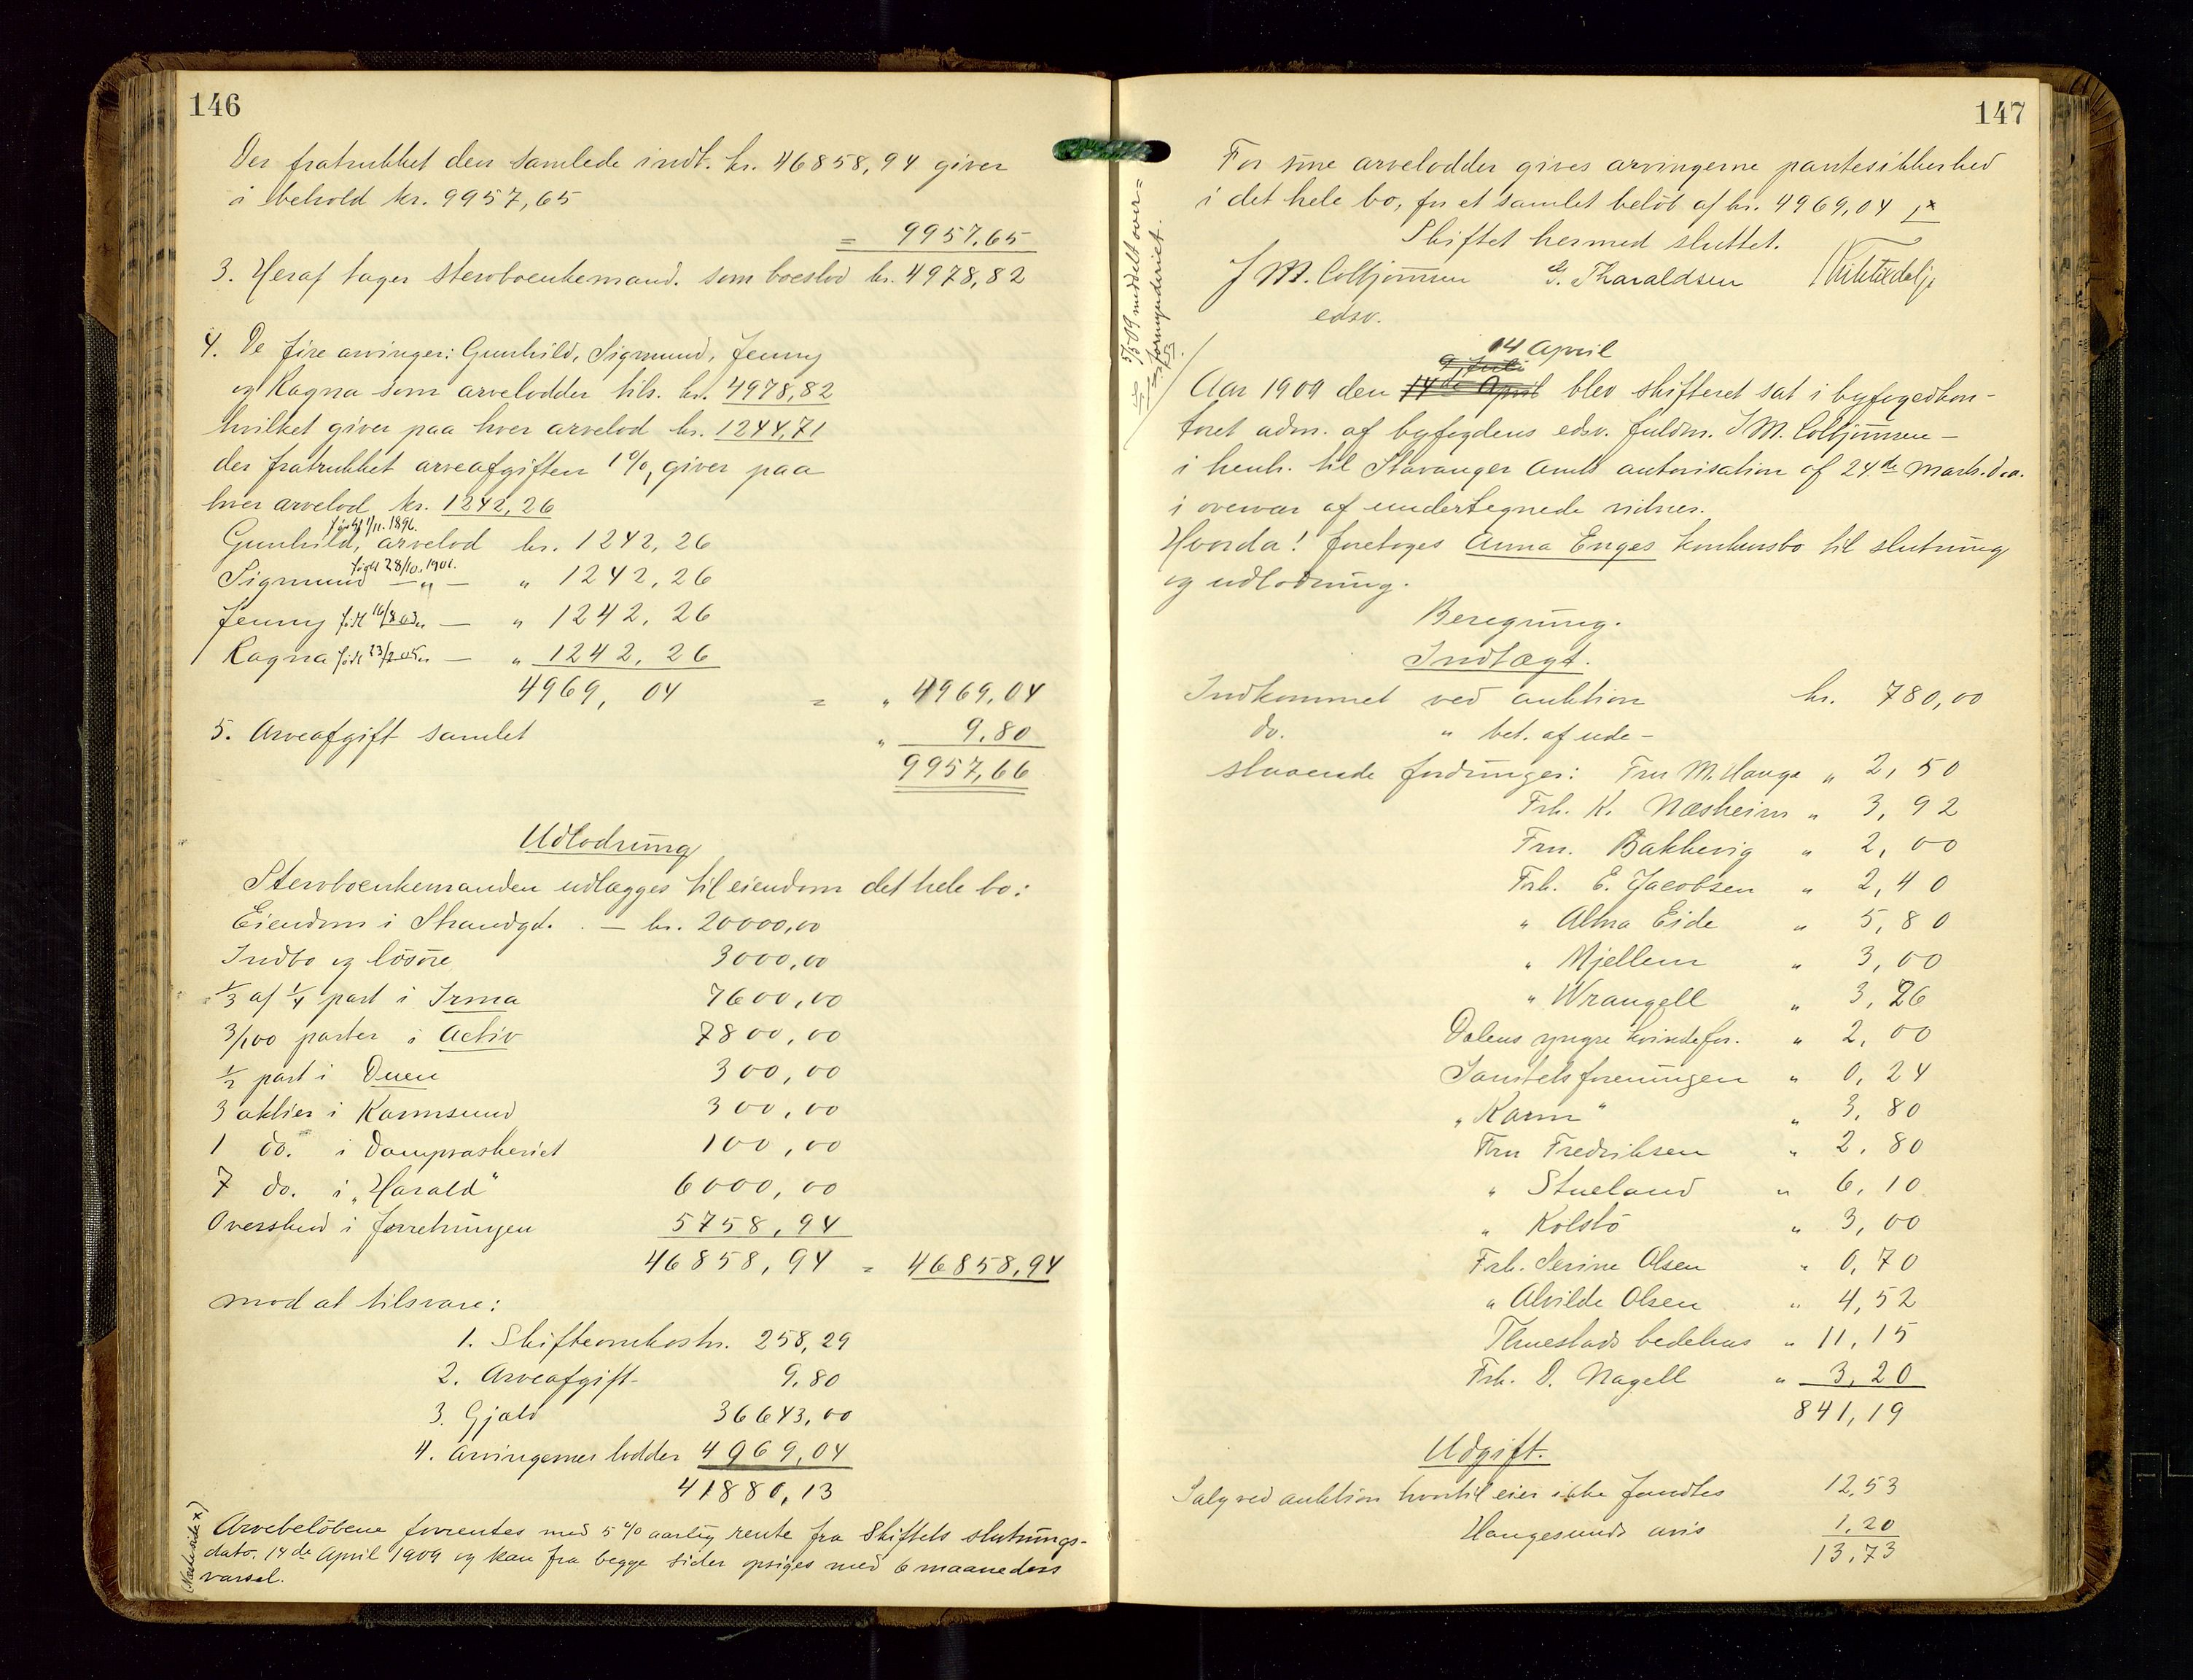 146
Der fratrukket den samlede indt. kr. 46858,94 giver
i behold kr. 9957,65
= 9957,65
3. Heraf tager stervboenkemand. som boeslod kr. 4978,82
4. De fire arvinger: Gunhild, Sigmund, Jenny
og Ragna som arvelodder tils. kr. 4978,82
hvilket giver paa hver arvelod kr. 1244,71
der fratrukket arveafgiften 1%, giver paa
hver arvelod kr. 1242,26
født 1/11. 1896.
Gunhild, arvelod kr. 1242,26
født 28/10. 1901.
Sigmund — „ — „ 1242,26
Jenny født 16/8 03 „ — „ 1242,26
Ragna født 23/2 05 „ — „ 1242,26
4969,04 = „ 4969,04
5. Arveafgift samlet „ 9,80
9957,66
Udlodning
Stervboenkemanden udlægges til eiendom det hele bo:
Eiendom i Strandgd. . — kr. 20000,00
Indbo og løsøre 3000,00
1/3 af 1/4 part i Irma 7600,00
3/100 parter i Activ 7800,00
1/2 part i Duen 300,00
3 aktier i Karmsund 300,00
1 do. i Dampvaskeriet 100,00
7 do. i „Harald" 6000,00
Overskud i forretningen 5758,94
46858,94 = 46858,94
mod at tilsvare:
1. Skifteomkostn. 258,29
2. Arveafgift 9,80
3. Gjæld 36643,00
4. Arvingernes lodder 4969,04
41880,13
(Næste side x)
Arvebeløbene forrentes med 5% aarlig rente fra Skiftets slutnings-
dato. 14de April 1909 og kan fra begge sider opsiges med 6 maaneders
varsel.
147
For sine arvelodder gives arvingerne pantesikkerhed
i det hele bo, for et samlet beløb af kr. 4969,04 x
Skiftet hermed sluttet.
J M. Colbjørnsen G. Tharaldsen
edsv.
5/5 09 meddelt over=
formynderiet.
14 April
9 Juli
Aar 1909 den 14de April blev skifteret sat i byfogedkon-
toret adm. af byfogdens edsv. fuldm. J M. Colbjørnsen —
i henh. til Stavanger Amts autorisation af 24de Marts. d.a.
i overvær af undertegnede vidner.
Hvorda! foretoges Anna Enges konkursbo til slutning
og udlodning.
Beregning.
Indtægt.
Indkommet ved auktion kr. 780,00
do. „ bet. af ude-
staaende fordringer: Fru M. Hauge „ 2,50
Frk. K. Næsheim „ 3,92
Fru. Bakkevig „ 2,00
Frk. E. Jacobsen „ 2,40
„ Alma Eide „ 5,80
„ Mjellem „ 3,00
„ Wrangell „ 3,26
Dalens yngre kvindefor. „ 2,00
Samtelsforeningen „ 0,24
„Karm" „ 3,80
Fru Fredriksen „ 2,80
„ Stueland „ 6,10
„ Kolstø „ 3,00
Frk. Serine Olsen „ 0,70
„ Alvilde Olsen „ 4,52
Thuestads bedehus „ 11,15
Frk. D. Nagell „ 3,20
841,19
Udgift.
Salg ved auktion hvortil eier ikke fandtes 12,53
Haugesunds avis 1,20
13,73